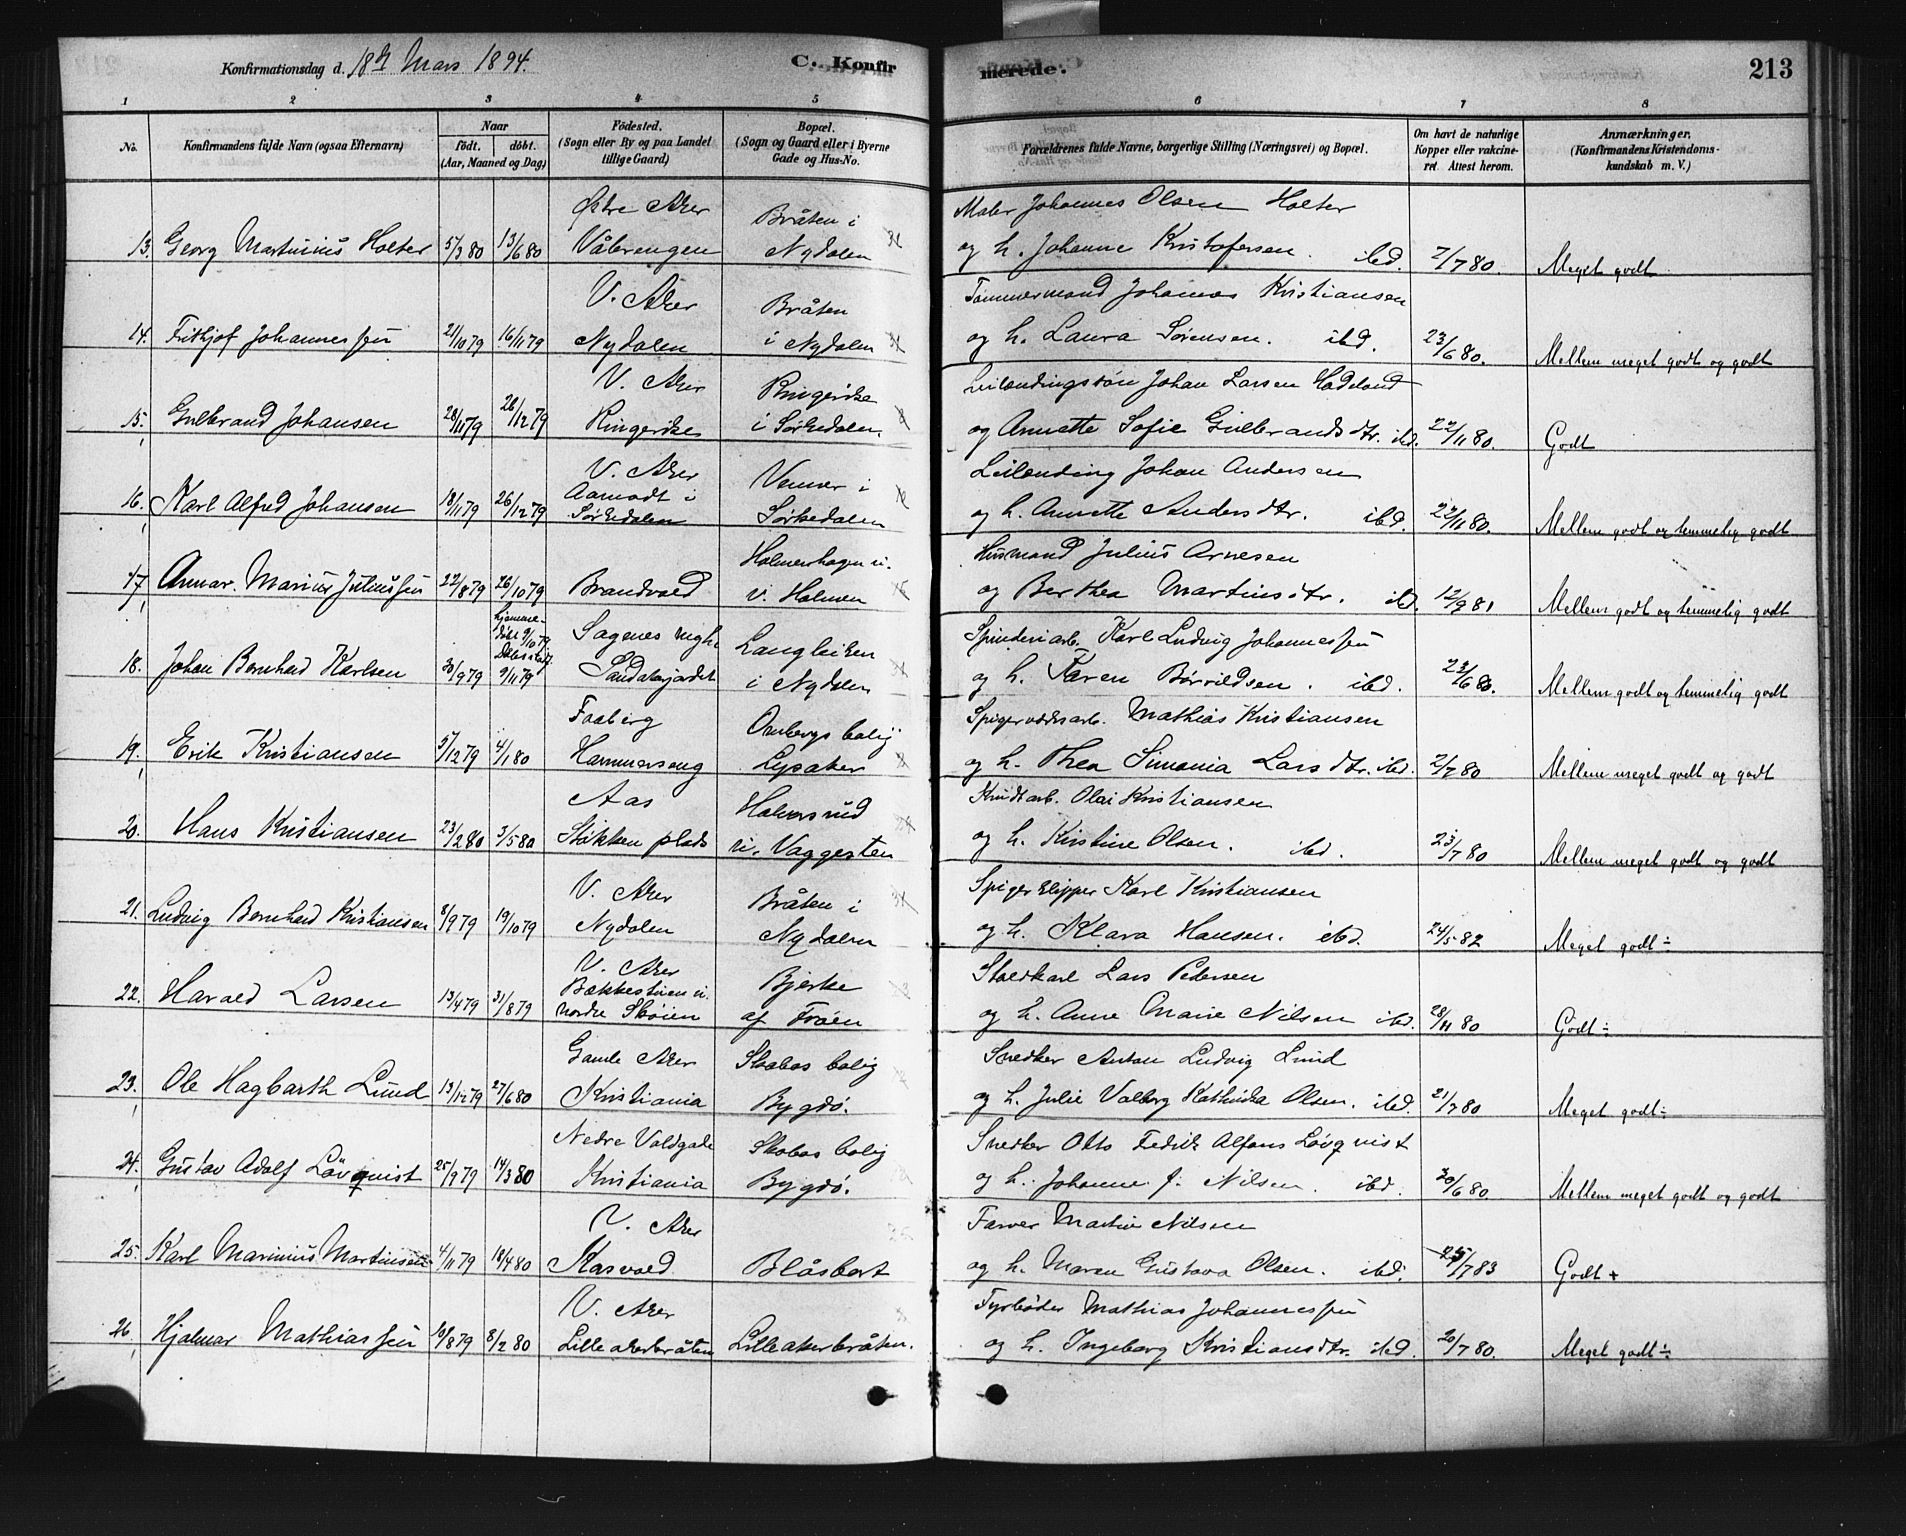 Konfirmationsdag d. 18de Mars 1894.
C. Konfirmerede.
213
1 2 3 4 5 6 7 8
No.
Konfirmandens fulde Navn (ogsaa Efternavn)
Naar
født. døbt.
(Aar, Maaned og Dag)
Fødested.
(Sogn eller By og paa Landet tillige Gaard)
Bopæl.
(Sogn og Gaard eller i Byerne Gade og Hus-No.
Forældrenes fulde Navne, borgerlige Stilling (Næringsvei) og Bopæl.
Om havt de naturlige Kopper eller vakcineret. Attest herom.
Anmærkninger.
(Konfirmandens Kristendomskundskab m. V.)
Østre Aker Bråten i Maler Johannes Olsen Holter
13. Georg Martinius Holter 5/3 80 13/6 80 Vålerengen Nydalen og h. Johanne Kristofersen. ibd. 2/7 80. Meget godt
V. Aker Bråten Tømmermand Johannes Kristiansen
14. Frithjof Johannessen 21/10 79 16/11 79 Nydalen i Nydalen og h. Laura Sørensen. ibd. 23/6 80. Mellem meget godt og godt
V. Aker Ringerike Leilændingssøn Johan Larsen Hadeland
15. Gulbrand Johansen 28/10 79 26/12 79 Ringerike i Sørkedalen. og Annette Sofie Gulbrandsdtr. ibd. 22/11 80. Godt
V. Aker Venner i Leilænding Johan Andersen
16. Karl Alfred Johansen 18/11 79 26/12 79 Aamodt i Sørkedalen Sørkedalen og h. Annette Andersdtr. ibd. 22/11 80. Mellem godt og temmelig godt
Holmenhagen u. Husmand Julius Arnesen
17. Annar. Marius Juliussen 22/8 79 26/10 79 Brandvold v. Holmen og Berthea Martinsdtr. ibd. 12/9 81 Mellem godt og temmelig godt
hjemmedøbt 9/10 79 Sagenes Langleiken Spinderiarb. Karl Ludvig Johannessen
18. Johan Bernhard Karlsen 30/9 79 9/11 79 Sandakerjordet i Nydalen og h. Karen Børrildsen. ibd. 23/6 80. Mellem godt og temmelig godt
Faaberg Ombergs bolig Spigerværksarb. Mathias Kristiansen
19. Erik Kristiansen 5/12 79 4/1 80 Hammerseng Lysaker og h. Thea Simonia Larsdtr. ibd. 2/7 80 Mellem meget godt og godt
Aas Halvorsrud Krudtarb. Olai Kristiansen
20. Hans Kristiansen 23/2 80 3/5 80 Støkken plads u. Vaggesten og h. Kristine Olsen. ibd. 23/7 80 Mellem meget godt og godt
V. Aker Bråten i Spigerklipper Karl Kristiansen
21. Ludvig Bernhard Kristiansen 8/9 79 19/10 79 Nydalen Nydalen og h. Klara Hansen. ibd. 24/5 82 Meget godt ÷
V. Aker Bjerke Staldkarl Lars Pedersen
22. Harald Larsen 13/4 79 31/8 79 Bækkestuen u. nordre Skøien af Frøen og h. Anne Marie Nilsen ibd. 28/11 80 Godt ÷
Gamle Aker Skabos bolig Snedker Anton Ludvig Lund
23. Ole Hagbarth Lund 13/12 79 27/6 80 Kristiania Bygdø. og h. Julie Valborg Kathinka Olsen. ibd. 21/7 80 Meget godt ÷
Nedre Voldgade Skabos bolig Snedker Otto Fedrik Alfons Lövqvist
24. Gustav Adolf Lövqvist 25/9 79 14/3 80 Kristiania Bygdø. og h. Johanne J. Nilsen. ibd. 30/6 80 Mellem meget godt og godt
V. Aker Farver Martin Nilsen
25. Karl Marinius Martinsen 4/11 79 18/4 80 Kasvold Blåsbort og h. Maren Gustava Olsen. ibd. 25/7 83 Godt +
V. Aker Fyrbøder Mathias Johannessen
26. Hjalmar Mathiassen 10/8 79 8/2 80 Lilleakerbråten Lilleakerbråten. og h. Ingeborg Kristiansdtr. ibd. 20/7 80. Meget godt ÷